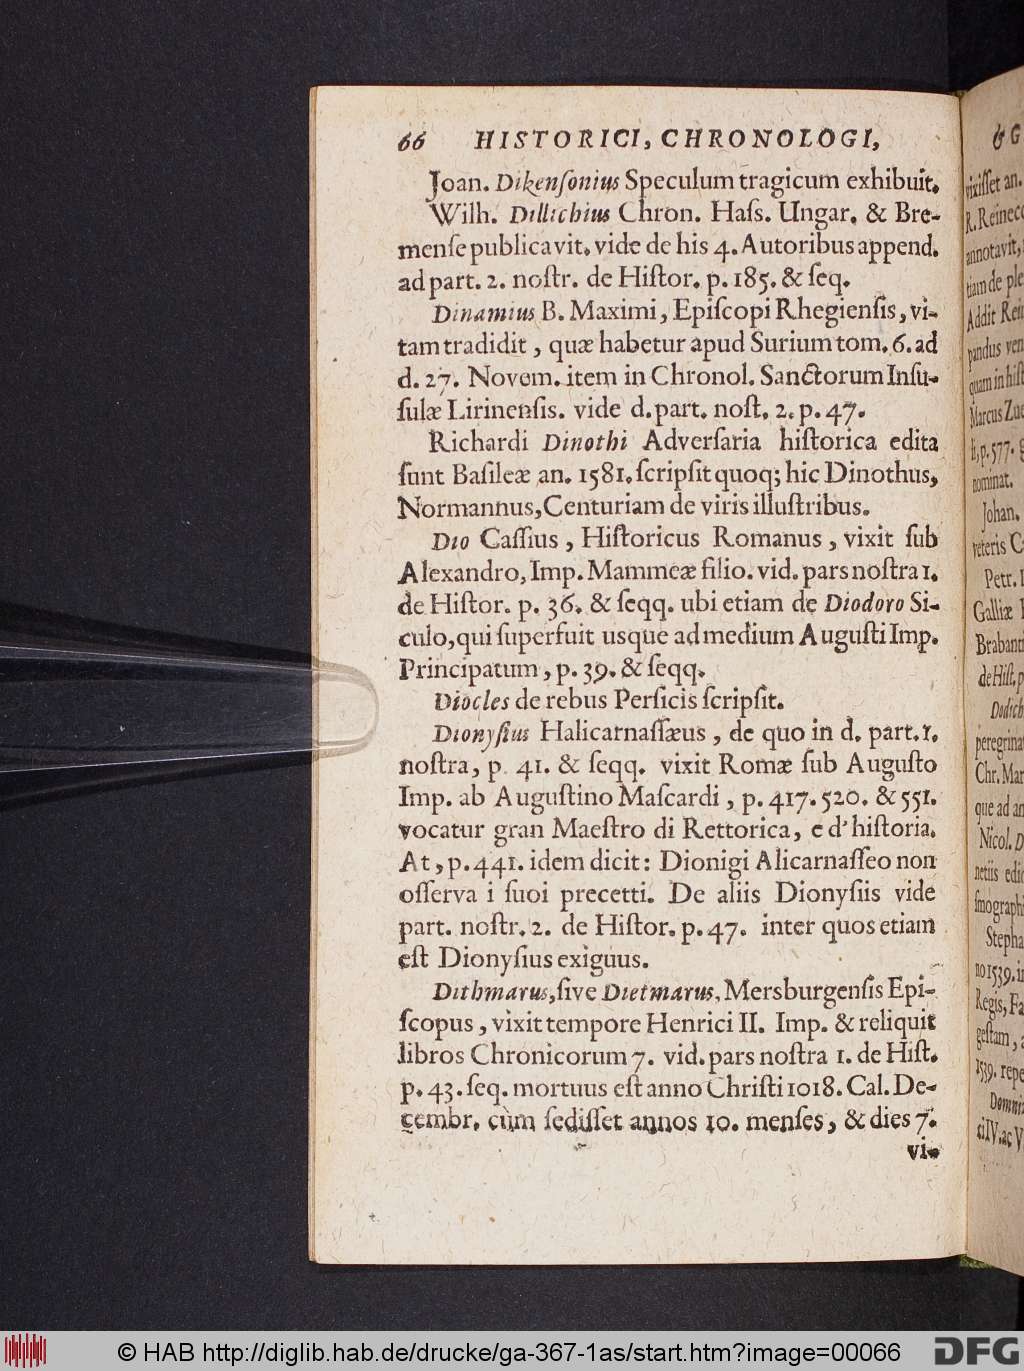 66 HISTORICI, CHRONOLOGI,
Joan. Dikenſonius Speculum tragicum exhibuit.
Wilh. Dillichius Chron. Haſs. Ungar. & Bre-
menſe publicavit. vide de his 4. Autoribus append.
ad part. 2. noſtr. de Hiſtor. p. 185. & ſeq.
Dinamius B. Maximi, Epiſcopi Rhegienſis, vi-
tam tradidit, quæ habetur apud Surium tom. 6. ad
d. 27. Novem. item in Chronol. Sanctorum Inſu-
ſulæ Lirinenſis. vide d. part. noſt. 2. p. 47.
Richardi Dinothi Adverſaria hiſtorica edita
ſunt Baſileæ an. 1581. ſcripſit quoq; hic Dinothus,
Normannus, Centuriam de viris illuſtribus.
Dio Caſſius, Hiſtoricus Romanus, vixit ſub
Alexandro, Imp. Mammeæ filio. vid. pars noſtra 1.
de Hiſtor. p. 36. & ſeqq. ubi etiam de Diodoro Si-
culo, qui ſuperfuit usque ad medium Auguſti Imp.
Principatum, p. 39. & ſeqq.
Diocles de rebus Perſicis ſcripſit.
Dionyſius Halicarnaſſæus, de quo in d. part. 1.
noſtra, p. 41. & ſeqq. vixit Romæ ſub Auguſto
Imp. ab Auguſtino Maſcardi, p. 417. 520. & 551.
vocatur gran Maeſtro di Rettorica, e d' hiſtoria.
At, p. 441. idem dicit: Dionigi Alicarnaſſeo non
oſſerva i ſuoi precetti. De aliis Dionyſiis vide
part. noſtr. 2. de Hiſtor. p. 47. inter quos etiam
eſt Dionyſius exiguus.
Dithmarus, ſive Dietmarus, Mersburgenſis Epi-
ſcopus, vixit tempore Henrici II. Imp. & reliquit
libros Chronicorum 7. vid. pars noſtra 1. de Hiſt.
p. 43. ſeq. mortuus eſt anno Chriſti 1018. Cal. De-
cembr. cùm ſediſſet annos 10. menſes, & dies 7.
vi-
& G
vixiſſet an.
R. Reinecc
annotavit,
tiam de ple
Addit Rei
pandus ven
quam in hiſt
Marcus Zue
li, p. 577. g
nominat.
Johan.
veteris C
Petr. 
Galliæ
Brabant
de Hiſt. p
Dodich
peregrinat
Chr. Mar
que ad an
Nicol. D
netiis edi
ſmographi
Stepha
no 1539. in
Regis, Fa
geſtam, a
1539. repe
Domni
ci IV. ac V
© HAB http://diglib.hab.de/drucke/ga-367-1as/start.htm?image=00066
DFG